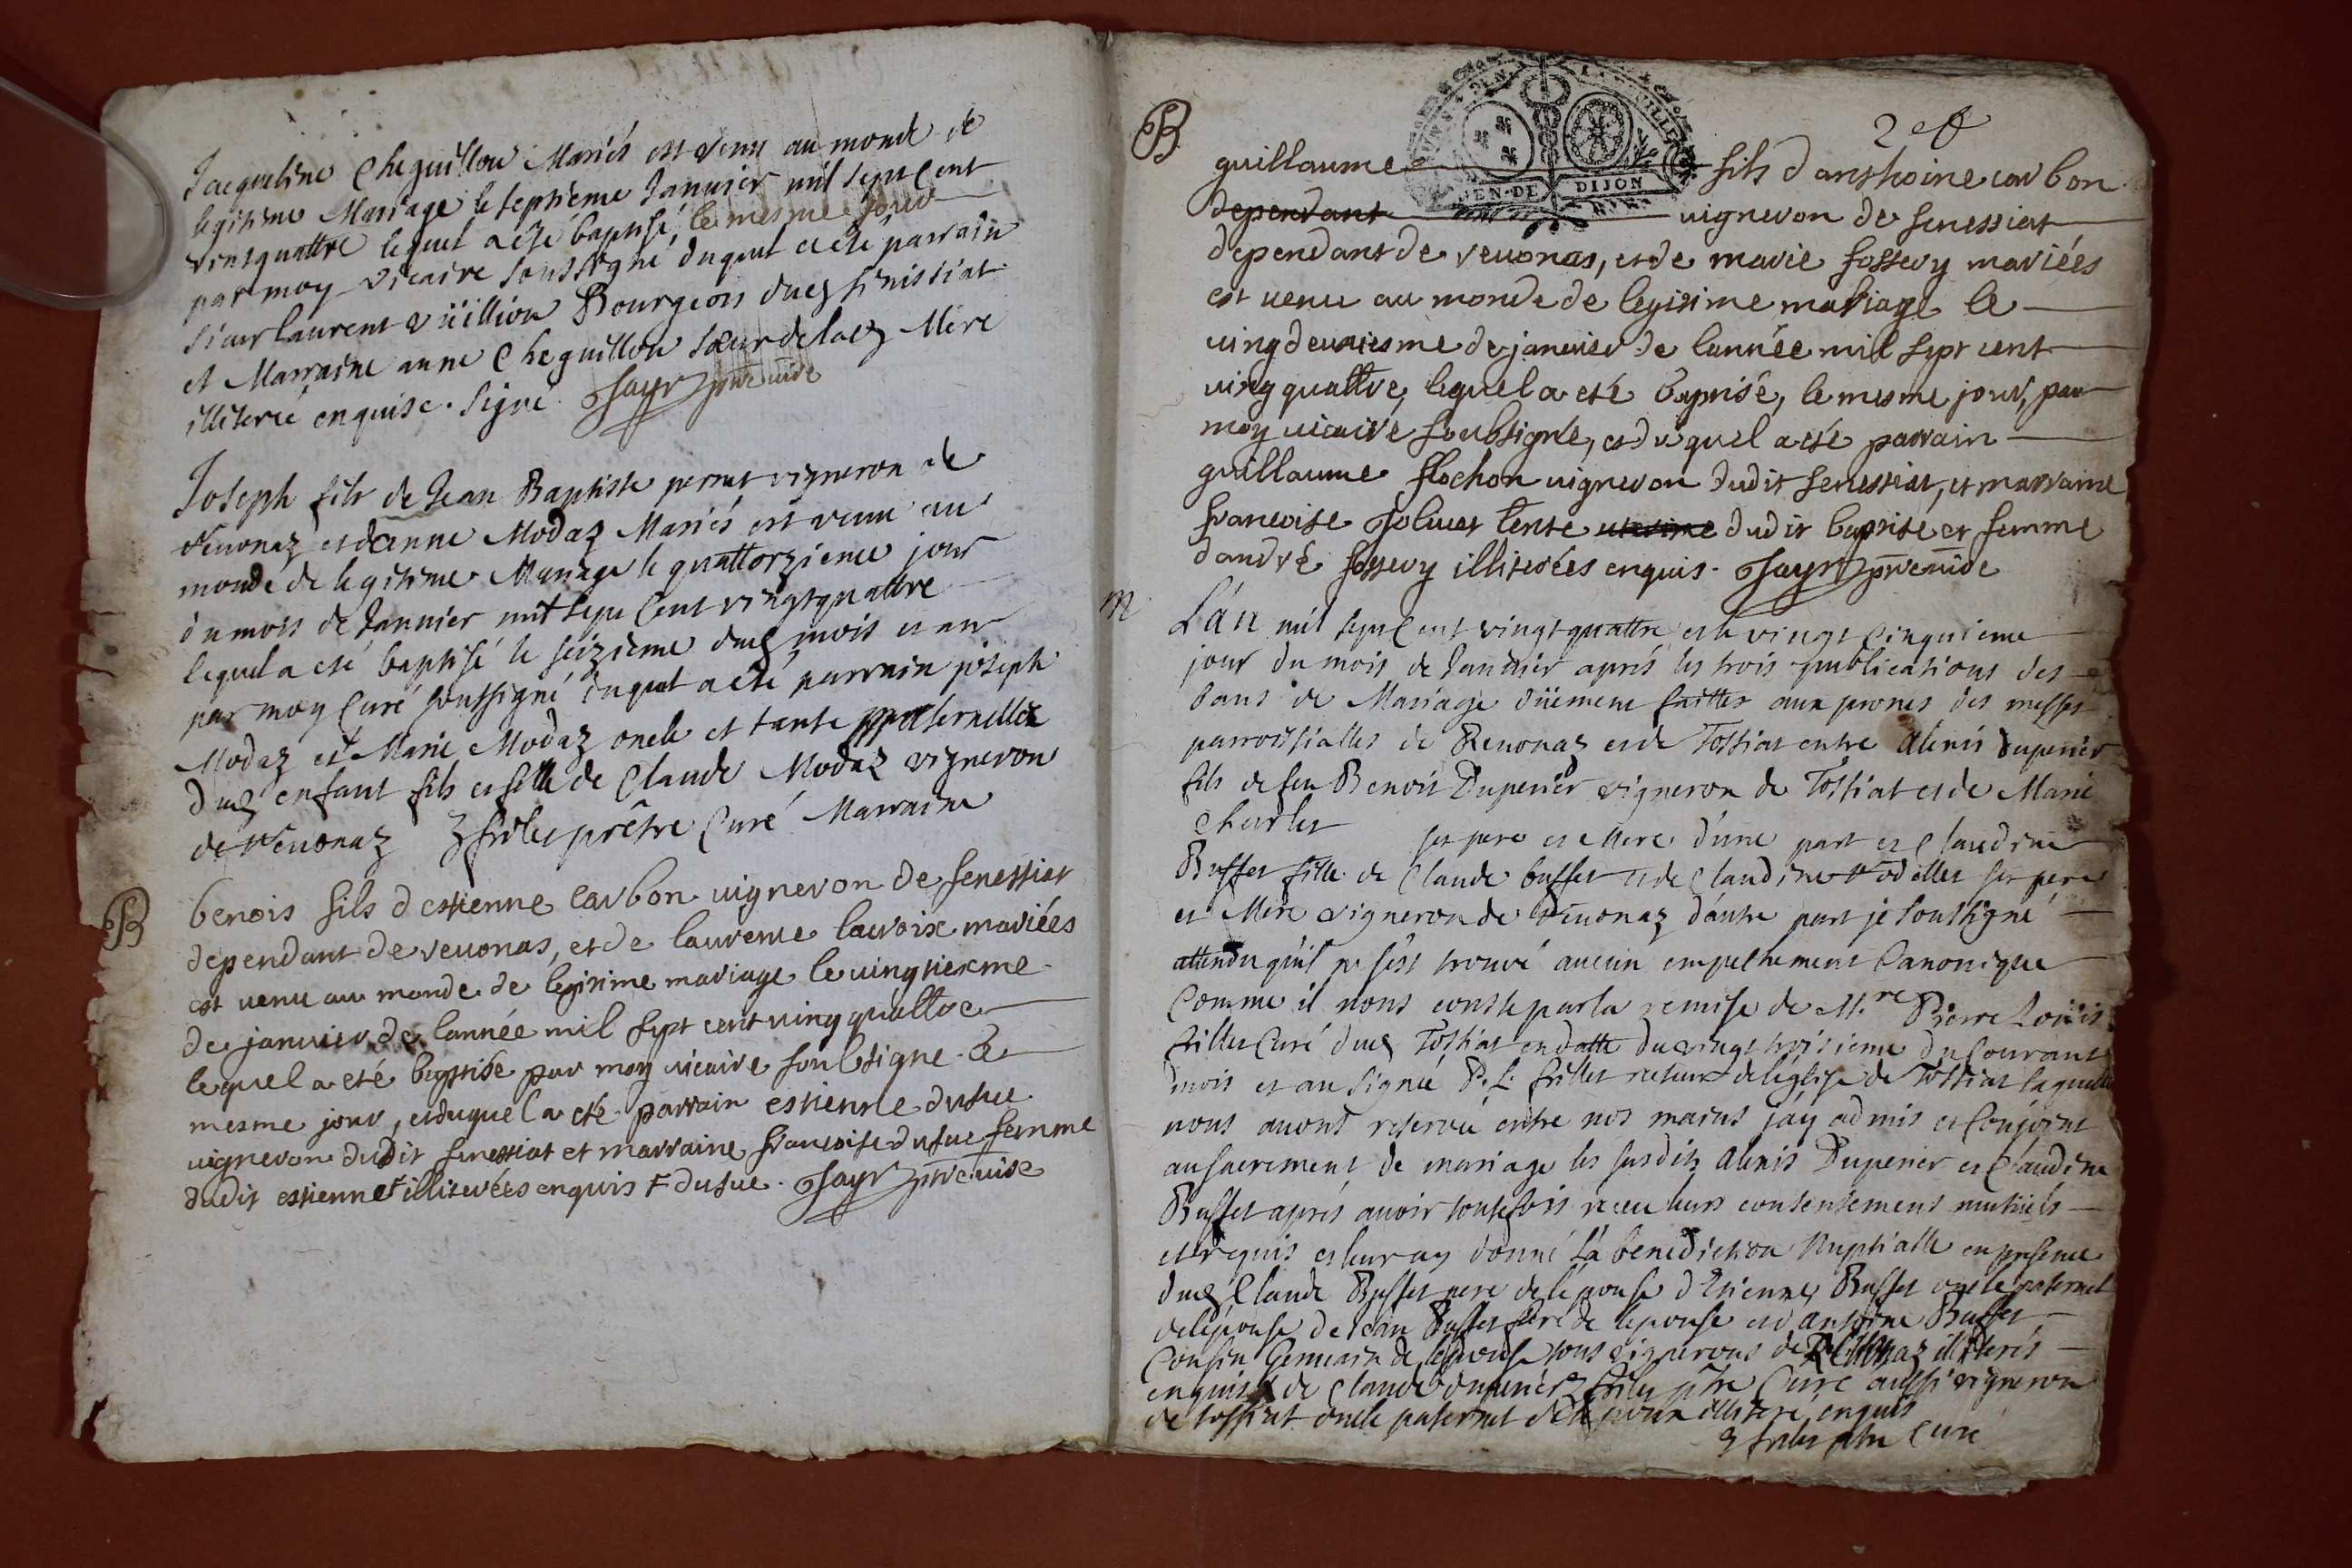 Jacqueline Cheguillou Mariés est venu au monde de
legitime Mariage le septieme Janvier mil sept Cent
vintquattre lequel a été baptisé, le mesme jour
par moy vicaire soussigné duquel a eté parrain
sieur laurent vüillion Bourgeois dud senissiat
et Marraine anne Cheguillou sœur de lad Mere
illiterée enquise. signé. Jayr prê vicre
Joseph fils de Jean Baptiste perret vigneron de
Revonaz et danne Modaz Mariés est venu au
monde de legitime Mariage le quattorzieme jour
du mois de Janvier mil sept Cent vingtquattre
lequel a eté baptisé le seizieme dud mois et an
par moy Curé soussigné duquel a eté parrain joseph
Modaz et Marie Modaz oncle et tante maternelle
dud enfant fils et fille de Claude Modaz vigneron
de Revonaz frilet prêtre Curé Marraine
B
benois fils d'estienne Carbon vigneron de senessiat
dependant de revonas, et de laurence lacroix mariées
est venu au monde de legitime mariage le vingtiesme
de janvier de lannée mil sept cent ving quattre
lequel a eté baptisé par moy vicaire soubsigne le
mesme jour, et duquel a eté parrain estienne dufue
vigneron dudit senessiat et marraine francoise dufue femme
dudit estienne illiterées enquis dufue. Jayr prê vicre
B
2 e
guillaume fils d'anthoine carbon
dependant vigneron de senessiat
dependant de revonas, et de marie fossery mariées
est venu au monde de legitime mariage le
ving deuxiesme de janvier de lannée mil sept cent
ving quattre, lequel a eté baptisé, le mesme jour, par
moy vicaire soubsigné, et duquel a eté parrain
guillaume flochon vigneron dudit senessiat, et marraine
francoise Joliuet tente dudit baptisé et femme
dandré fossery illiterées enquis. Jayr prê vicre
M
L'án mil sept Cent vingt quattre et le vingt Cinquieme
jour du mois de Janvier aprés les trois publications des
bans de Mariage düement faittes aux prones des messes
parroissialles de Revonaz et de Tossiat entre Alexis Duperier
fils de feu Benoit Duperier vigneron de Tossiat et de Marie
Charlet ses pere et Mere d'une part et Claudine
Buffet fille de Claude buffet et de Claudine Rodellet ses pere
et Mere vigneron de Revonaz d'autre part je soussigné
attendu qu'il ne s'est trouvé aucun empeschement Canonique
Comme il nous conste par la remise de M.re Pierre Loüis
frillet Curé dud Tossiat en datte du vingt troisieme du Courant
mois et an signée P. L. frillet recteur de l'église de Tossiat laquelle
nous avons reservée entre nos mains j'ay admis et Conjoint
au sacrement de mariage les susdits Alexis Duperier et Claudine
Buffet aprés avoir toutefois receu leurs consentements mutüels
et requis et leur ay donné la benediction Nuptialle en presence
dud Claude Buffet pere de l'épouse d'Etienne Buffet oncle paternel
de l'épouse de Jean Buffet frere de l'epouse et d'antoine Buffet
Cousin Germain de l'epouse tous vignerons de Revonaz illiterés
enquis de Claude duperier frilet ptre Curé aussi vigneron
de tossiat oncle paternel de l'epoux illiteré enquis
frilet ptre Curé